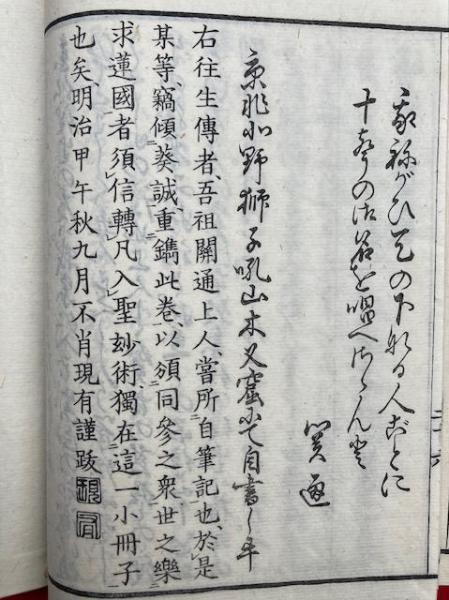 我祢がひ天の下なる人ごとに
十聲の御名を唱へさせんと
関通
北野獅子吼山木叉窟にて自書し畢
右往生傳者、吾祖關通上人、嘗所自筆記也、於是
某等、竊傾葵誠、重鐫此卷、以頒同參之衆、世之樂
求蓮國者須信轉凡入聖玅術獨在這一小冊子
也矣、明治甲午秋九月不肖現有謹跋
現有